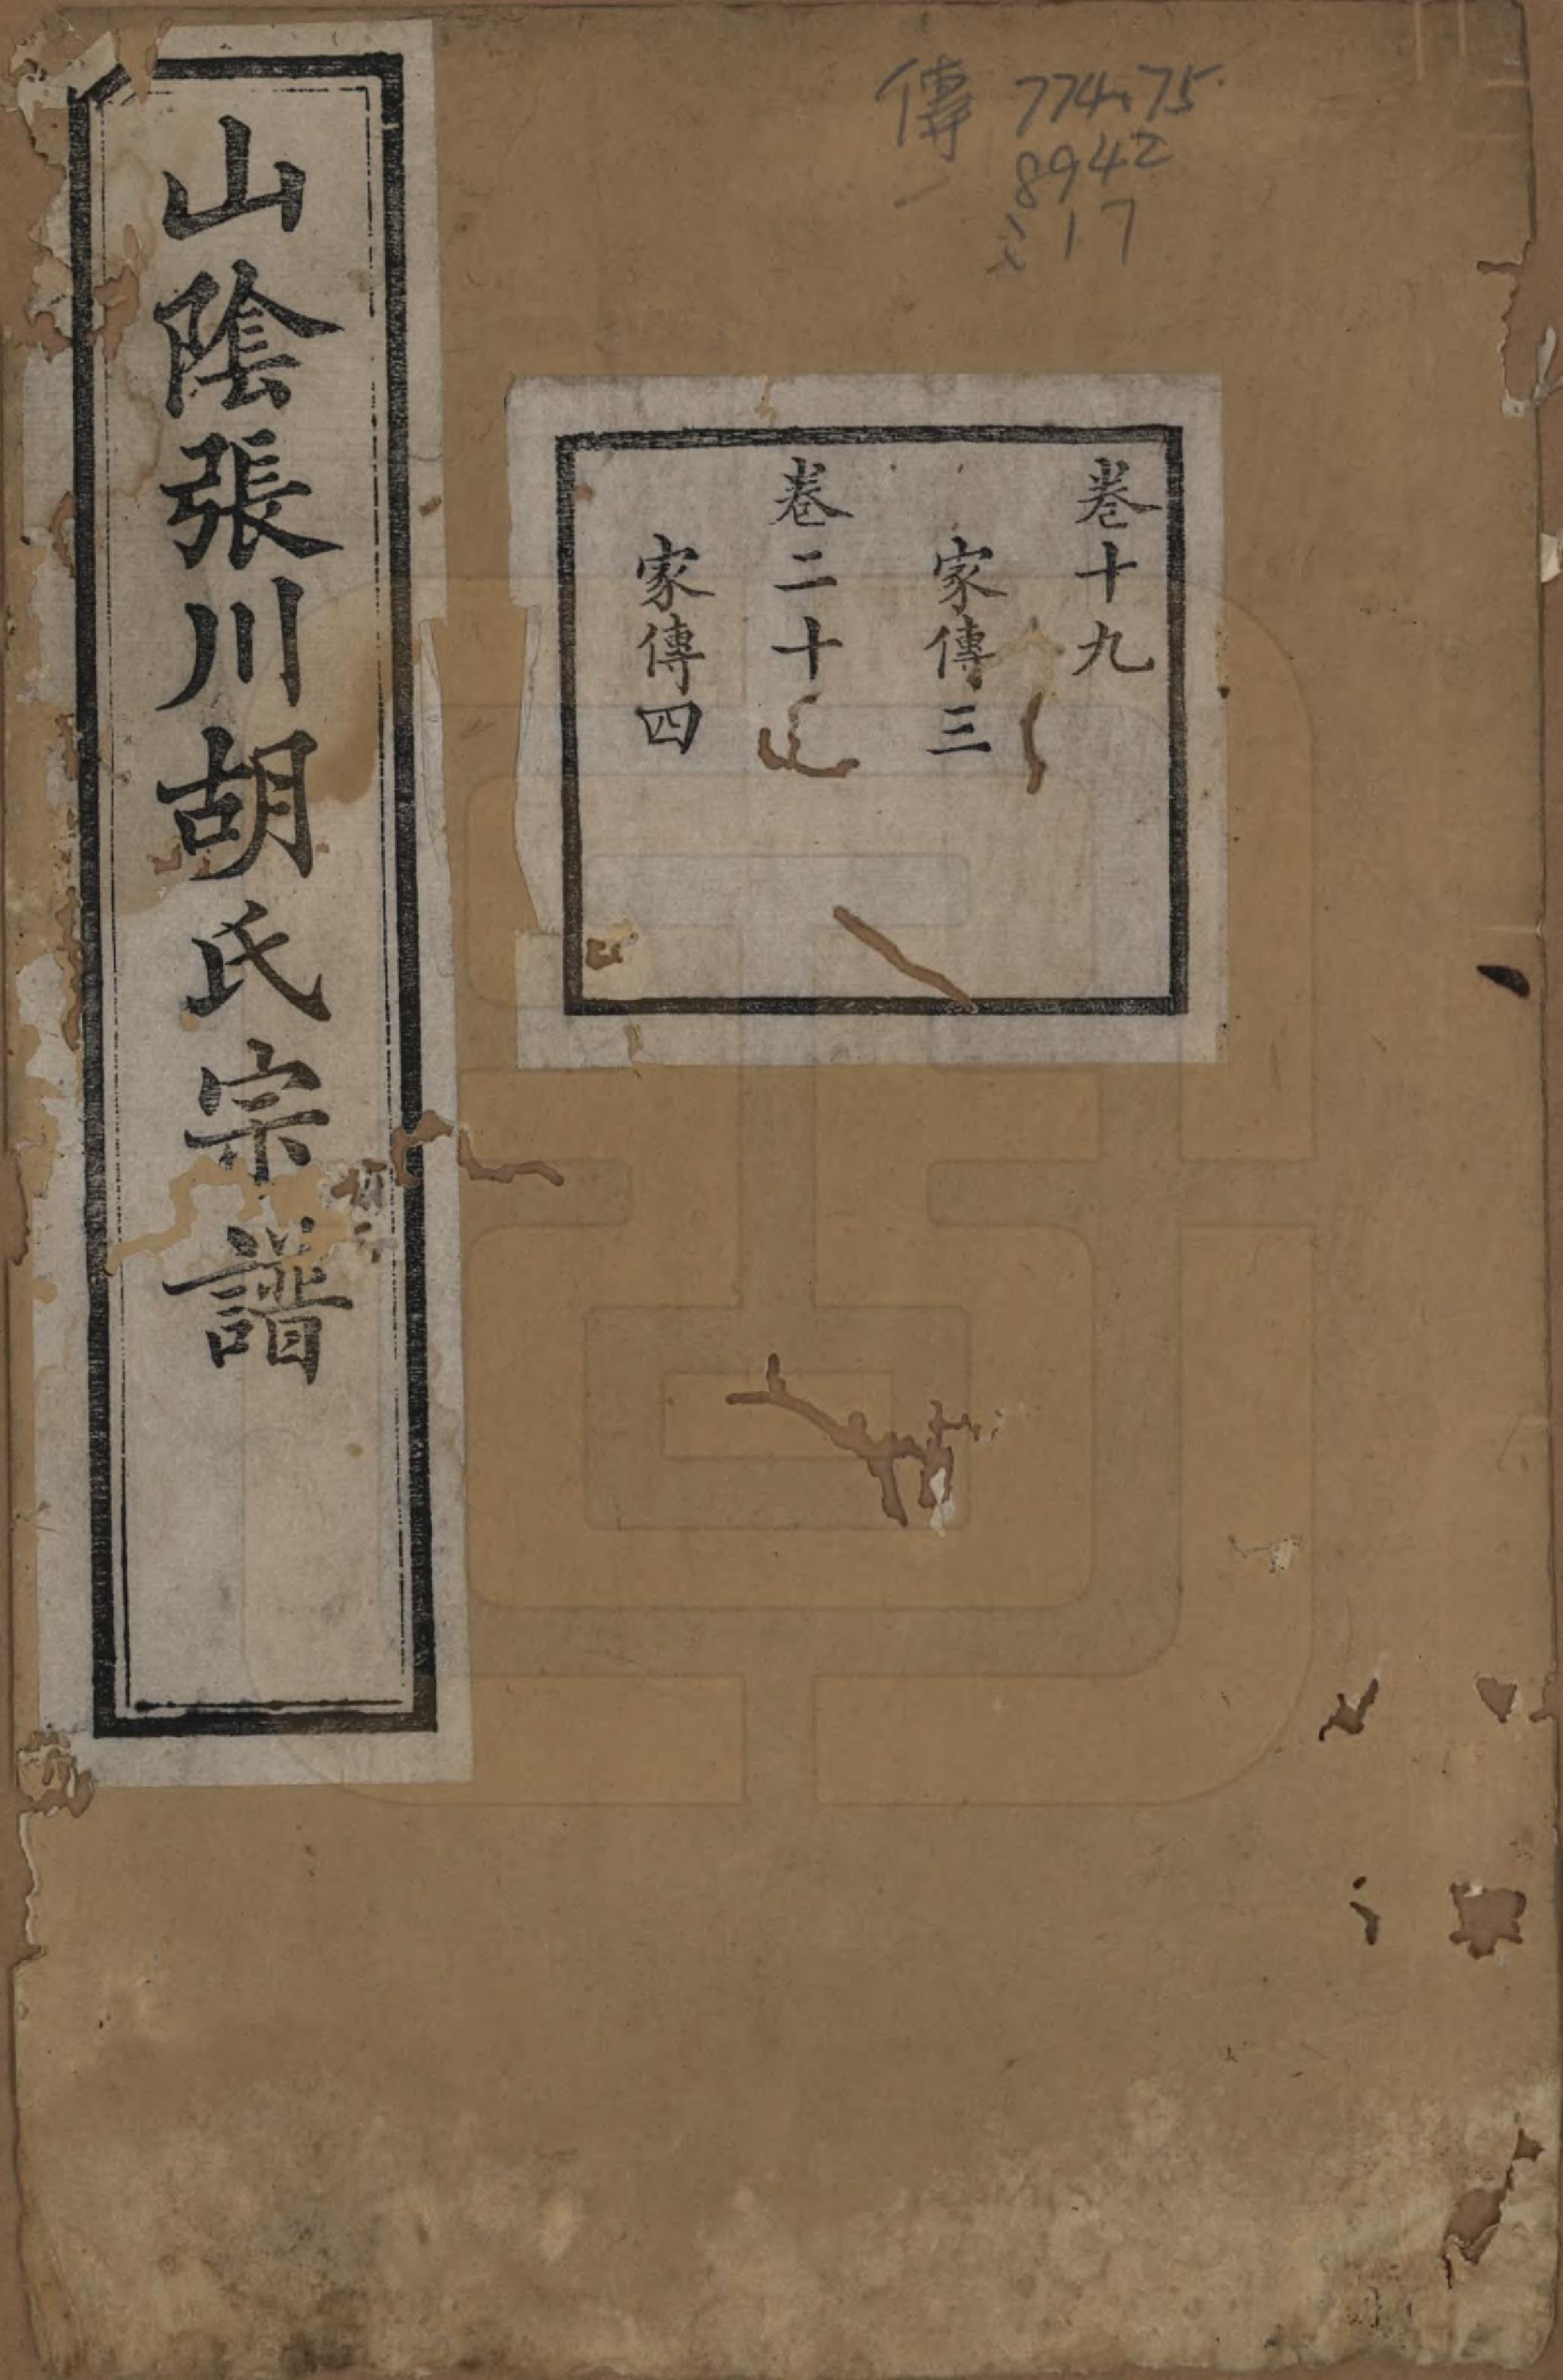 傳 774.75
8942
:17
卷十九
家傳三
卷二十
家傳四
山陰張川胡氏宗譜